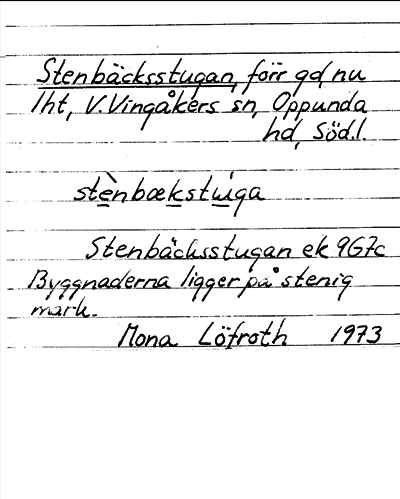 Stenbäcksstugan, förr gd, nu
lht, V. Vingåkers sn, Oppunda
hd, Söd.l.
stènbækstúga
Stenbäcksstugan ek 9G7c
Byggnaderna ligger på stenig
mark.
Mona Löfroth 1973